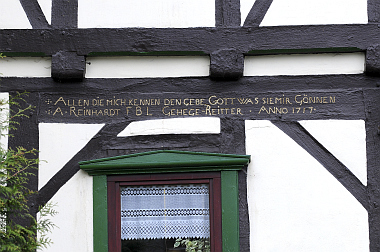 ✣ ALLEN DIE MICH KENNEN DEN GEBE GOTT WAS SIE MIR GÖNNEN
✣ A. REINHARDT F B L GEHEGE-REITTER ✣ ANNO 1717 ✣